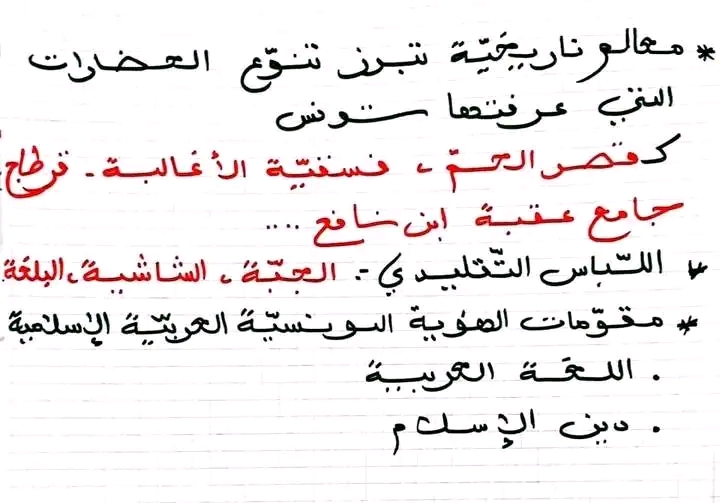 * معالم تاريخيّة تبرز تنوّع الحضارات
التي عرفتها تونس
كـقصر الجمّ، فسقيّة الأغالبة - قرطاج
جامع عقبة ابن نافع ....
* اللّباس التّقليدي :- الجبّة، الشاشية، البلغة
* مقوّمات الهوية التونسيّة العربيّة الإسلامية
. اللغة العربية
. دين الإسلام